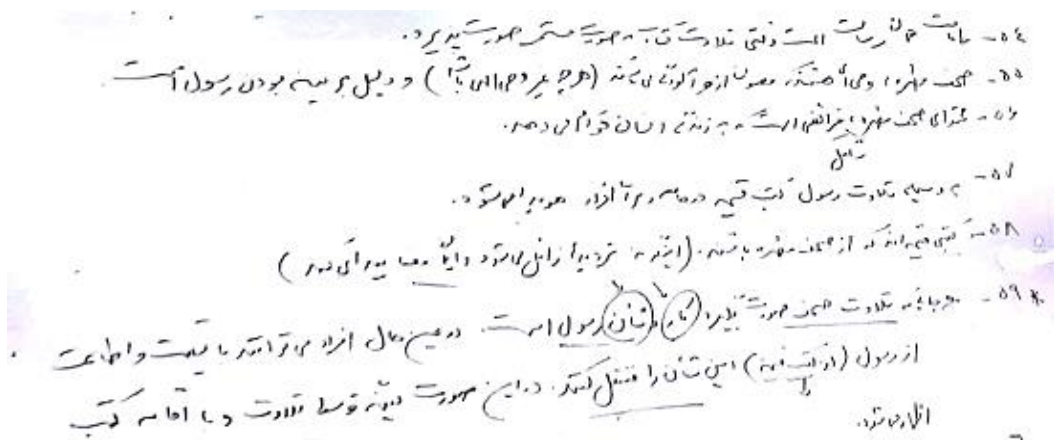 ۵۴- بیانات همان رسالت است وقتی تلاوت کتاب به صورت مستمر صورت پذیرد.
۵۵- صحف مطهره، وحی‌ای هستند که مصون از هر آلودگی می‌باشند (هر چه غیر وحی الهی باشد) و دلیل بر بینه بودن رسول است.
۵۶- محتوای صحف مطهره، فرائضی است که به زندگی انسان قوام می‌دهد.
تکامل
۵۷- به وسیله تلاوت رسول کتب قیمه در جامعه و برای افراد هویدا می‌شود.
۵۸- کتبی قیمه‌اند که از صحف مطهره باشند. (اینگونه تردیدها زائل می‌شود و معنا پیدا می‌کند)
۵۹- هر جا که تلاوت صحف صورت پذیرد، کار و شأن رسول است. در عین حال افراد می‌توانند با تبعیت و اطاعت
از رسول (از کتب قیمه) این شأن را منتقل کنند. در این صورت بینه توسط تلاوت و با اقامه کتب
اظهار می‌شود.